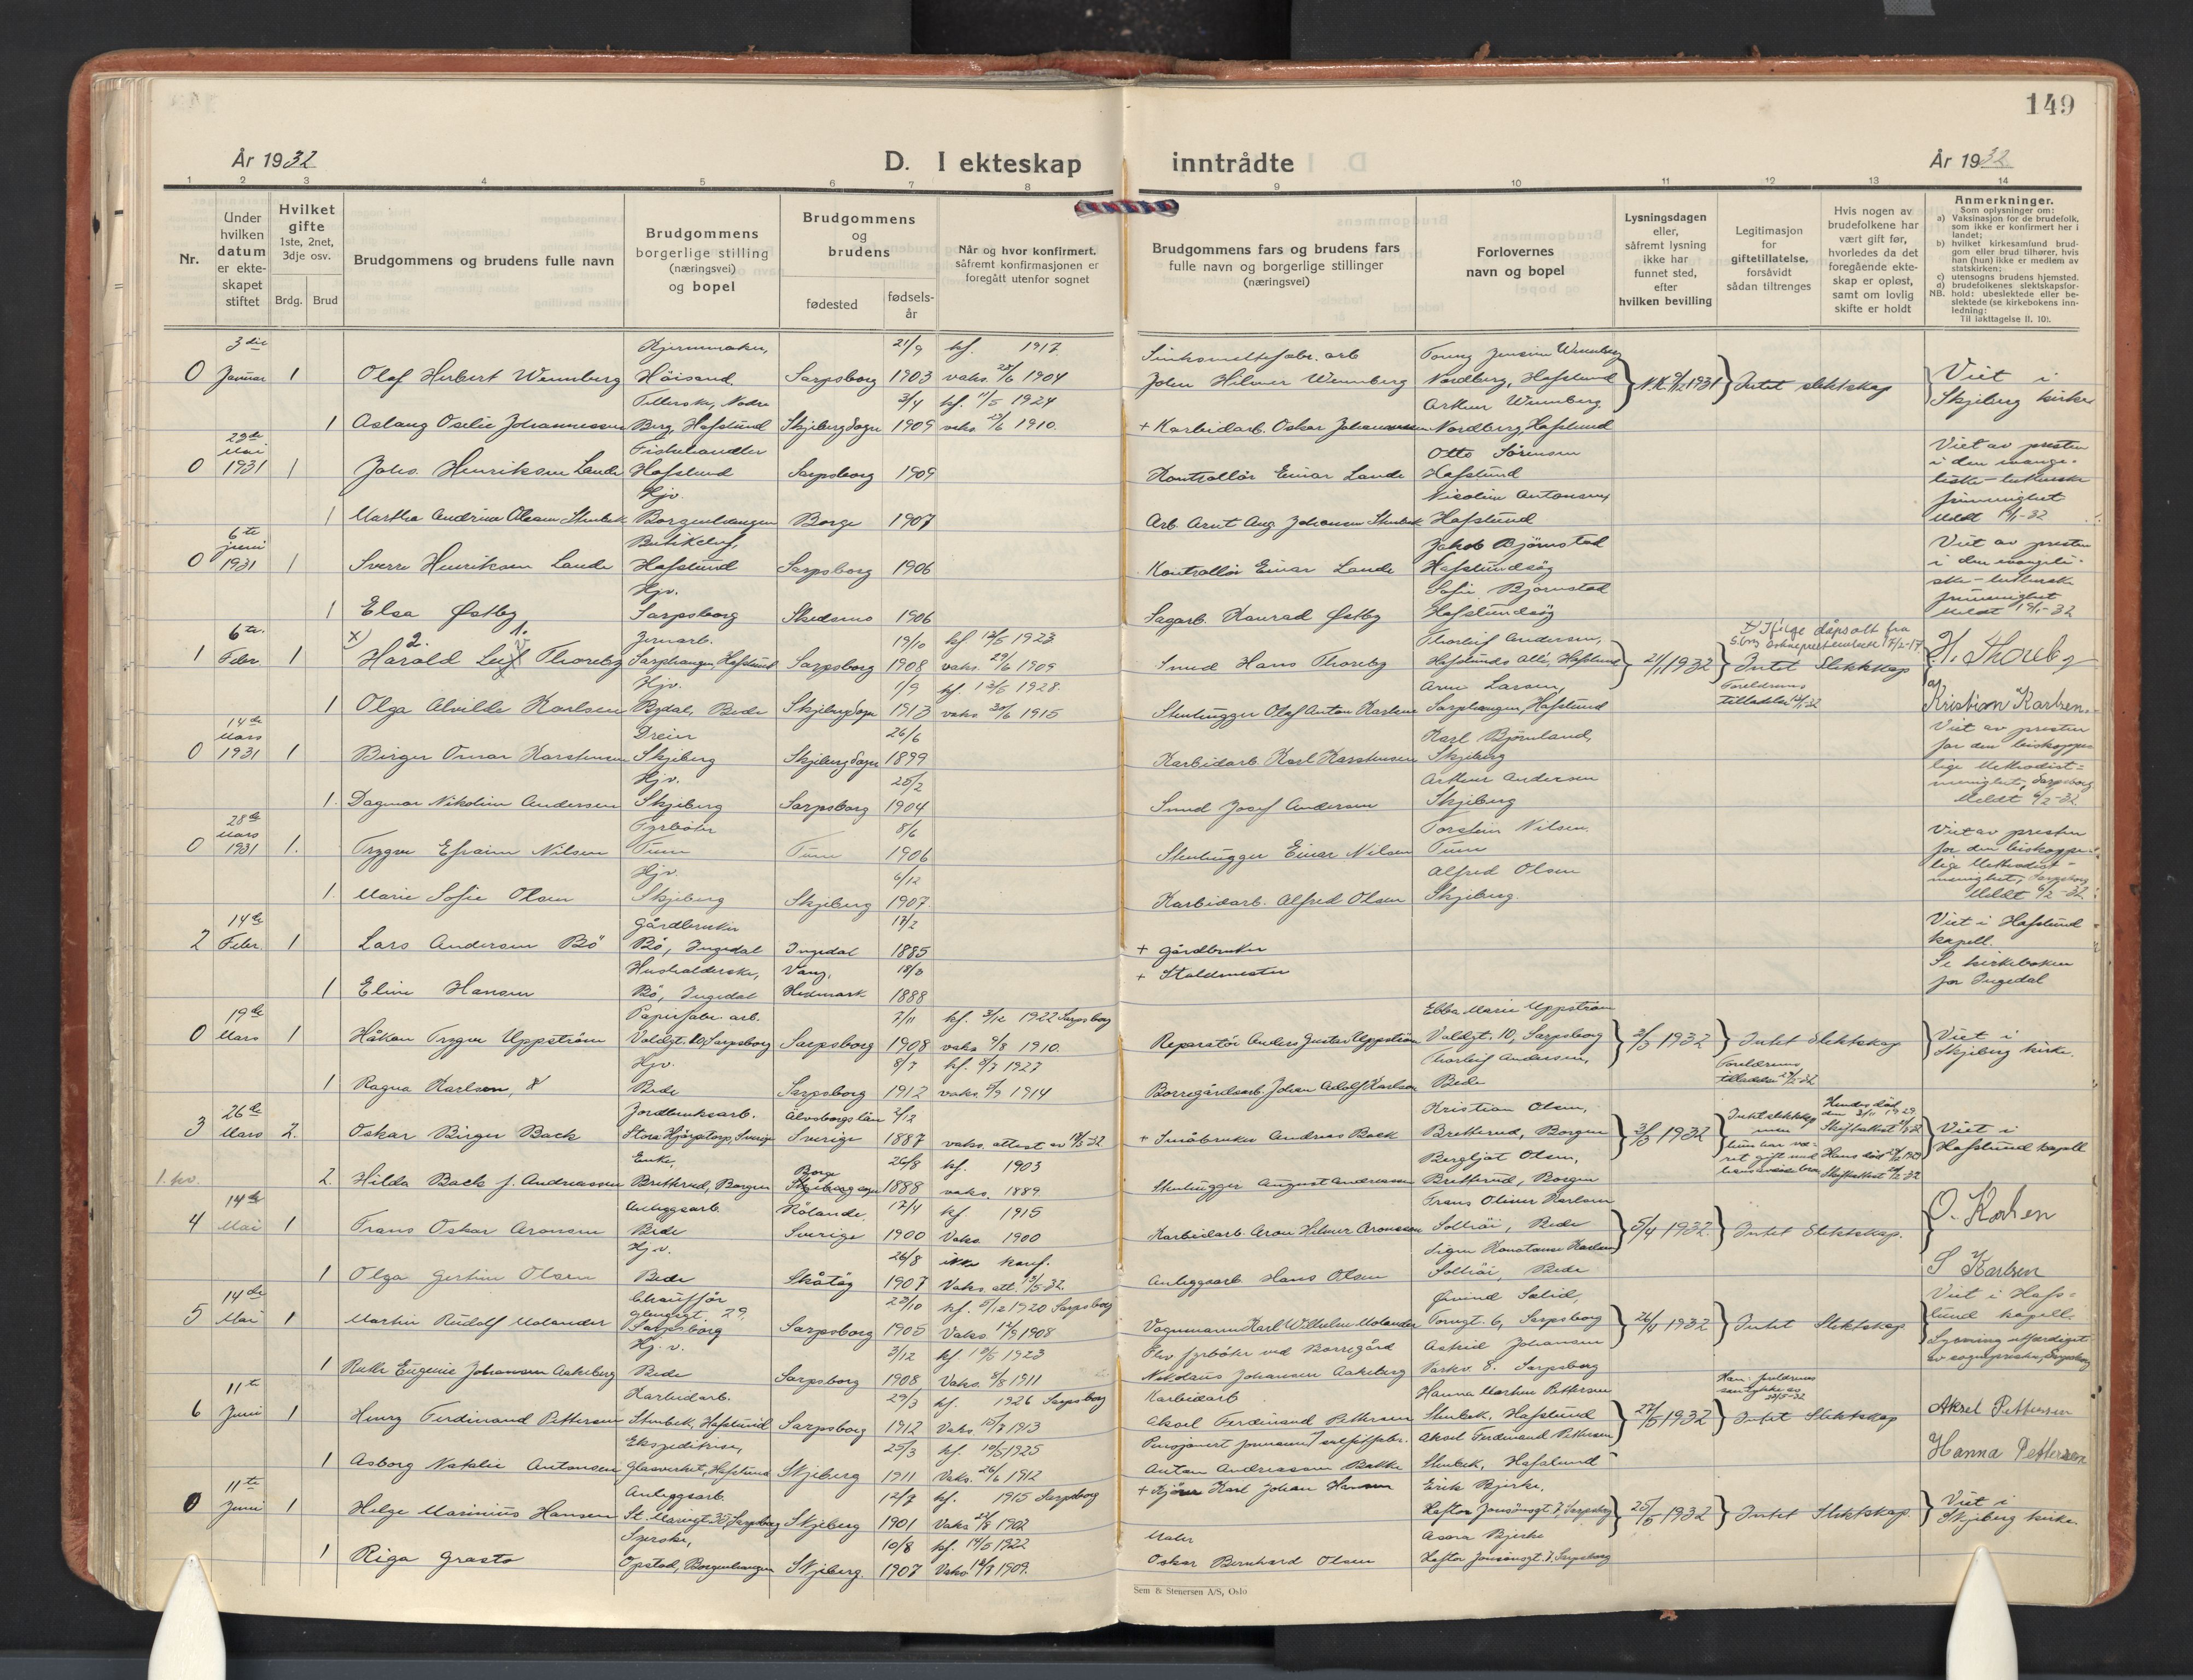 149
År 1932
D. I ekteskap inntrådte
År 1932
1 2 3 4 5 6 7 8 9 10 11 12 13 14
Nr.
Under hvilken datum er ekteskapet stiftet
Hvilket gifte
1ste, 2net, 3dje osv.
Brdg. Brud
Brudgommens og brudens fulle navn
Brudgommens borgerlige stilling (næringsvei) og bopel
Brudgommens og brudens
fødested
fødselsår
Når og hvor konfirmert, såfremt konfirmasjonen er foregått utenfor sognet
Brudgommens fars og brudens fars fulle navn og borgerlige stillinger (næringsvei)
Forlovernes navn og bopel
Lysningsdagen eller, såfremt lysning ikke har funnet sted, efter hvilken bevilling
Legitimasjon for giftetillatelse, forsåvidt sådan tiltrenges
Hvis nogen av brudefolkene har vært gift før, hvorledes da det foregående ekteskap er opløst, samt om lovlig skifte er holdt
Anmerkninger.
Som oplysninger om:
a) Vaksinasjon for de brudefolk, som ikke er konfirmert her i landet;
b) hvilket kirkesamfund brudgom eller brud tilhører, hvis han (hun) ikke er medlem av statskirken;
c) utensogns brudens hjemsted.
d) brudefolkenes slektskapsforhold: ubeslektede eller beslektede (se kirkebokens innledning:
NB.
Til iakttagelse II. 10).
3die 21/9 kf. 1917
0 Januar 1 Olaf Herbert Wennberg Höisand. Sarpsborg 1903 vaks. 28/6 1904 John Hilmer Wennberg Nordberg, Hafslund Intet slektskap Viet i
3/4 kf. 11/5 1924 Arthur Wennberg Skjeberg kirke
1 Aslaug Oselie Johannessen Berg, Hafslund Skjeberg sogn 1909 1910. + Karbidarb. Oskar Johannessen Nordberg, Hafslund
Fiskehandler Otto Sörensen Viet av presten
0 1931 1 Johs. Henriksen Lande Hafslund Sarpsborg 1909 Kontrollör Einar Lande Hafslund i den evange-
Hjv. Nicoline Antonsen, liske-lutherske
1 Martha Andrine Olsen Stenbek Borgenhaugen Borge 1907 Arb. Arnt Aug. Johansen Stenbek Hafslund frimenighet
6te juni Jakob Björnstad Viet av presten
0 1931 1 Sverre Henriksen Lande Hafslund Sarpsborg 1906 Kontrollör Einar Lande Hafslundsög i den evangeli-
Hjv. Sofie Björnstad ske-lutherske
1 Elsa Østby Sarpsborg Skedsmo 1906 Sagarb. Konrad Østby Hafslundsög frimenighet
6te 2. 1. Jernarb. 19/10 kf 13/5 1923 Thorleif Andersen,
1 Febr 1 Harald Leif Thoreby Sarphaugen, Hafslund Sarpsborg 1908 vaks. 29/6 1909 Smed Hans Thoreby Hafslunds allé, Hafslund 21/1 1932 Intet Slektskap H. Thoreby
Hjv. 1/9 kf. 13/5 1928. Arne Larsen,
1 Olga Alvilde Karlsen Bydal, Bede Skjeberg sogn 1913 vaks. 30/6 1915 Stenhugger Olaf Anton Karlsen Sarphaugen, Hafslund Kristian Karlsen.
14de Mars Dreier 26/6 Karl Björnland, Viet av presten
0 1931 1 Birger Omar Karstensen Skjeberg Skjeberg sogn 1899 Karbidarb. Karl Karstensen Skjeberg for den biskoppe-
Hjv. 25/2 Arthur Andersen lige Methodist-
1. Dagmar Nikoline Andersen Skjeberg Sarpsborg 1904 Smed Josef Andersen Skjeberg menighet, Sarpsborg
Meldt 6/2-32
28de Mars Fyrböter 8/6 Torstein Nilsen. Viet av presten
0 1931 1. Trygve Efraim Nilsen Tune Tune 1906 Stenhugger Einar Nilsen Tune for den biskoppe-
Hjv. 6/12 Alfred Olsen lige Methodist-
1. Marie Sofie Olsen Skjeberg Skjeberg 1907. Karbidarb. Alfred Olsen Skjeberg. menighet, Sarpsborg
Meldt 6/2-32
14de Gårdbruker 17/2 Viet i Hafslund
2 Febr 1 Lars Andersen Bö Bö, Ingedal Ingedal 1885 + gårdbruker kapell.
Husholderske, Vang, + Staldmester Se kirkeboken
1 Eline Hansen Bö, Ingedal Hedmark 1888 for Ingedal
19de Papirfabr. arb. 7/11 kf. 3/12 1922 Sarpsborg Ebba Marie Uppström
0 Mars 1 Håkon Trygve Uppström Voldgt. 10, Sarpsborg Sarpsborg 1908 vaks 9/8 1910. Reparatör Anders Gustav Uppström Voldgt. 10, Sarpsborg 2/3 1932 Intet Slektskap Viet i
Hjv. 8/7 kf. 3/7 1927 Thorleif Andersen, Skjeberg kirke.
1 Ragna Karlsen, Bede Sarpsborg 1912 vaks. 5/9 1914 Borregårdsarb. Johan Adolf Karlsen Bede
26de Jordbruksarb. Älvsborgs län 2/12 Kristian Olsen,
3 Mars 2. Oskar Birger Back Stora Hjärstorp, Sverige Sverige 1887 vaks. attest + Småbruker Andreas Back Bretterud, Borgen 3/3 1932 Viet i
Enke, 26/8 kf. 1903 Bergljot Olsen, Hafslund kapell
2. Hilda Back f. Andreassen Bretterud, Borgen Borge 1888 vaks. 1889. Stenhugger August Andreassen Bretterud, Borgen
14de Anleggsarb. Rölanda. 17/4 kf. 1915 Frans Oliver Karlsen
4 Mai 1 Frans Oskar Aronsen Bede Sverige 1900 Vaks. 1900 Karbidarb. Aron Helmer Aronsson Solhöi, Bede 5/4 1932. Intet Slektskap. O. Karlsen
Hj.v. 26/8 ikke konf. Signe Konstanse Karlsen
1 Olga Gertine Olsen Bede Skåtöy 1907 Vaks. att. 13/5-32. Anleggsarb Hans Olsen Solhöi, Bede S Karlsen
14de Chauffför 23/10 kf. 5/12 1920 Sarpsborg Øivind Solid, Viet i Hafs=
5 Mai 1 Martin Rudolf Molander Glengsgt. 29. Sarpsborg Sarpsborg 1905 Vaks. 12/9 1908 Vognmann Karl Wilhelm Molander Torvgt. 6, Sarpsborg 26/4 1932 Intet Slektskap lund kapell.
Hj. v. 3/12 kf. 13/5 1923 fyrböter ved Borregård Astrid Johansen Lysning utferdiget
1 Rulle Eugenie Johansen Aakeberg Bede Sarpsborg 1908 Vaks. 8/8 1911 Nikolaus Johansen Aakeberg 8. Sarpsborg av sogneprest, Sarpsborg
11te Karbidarb. 29/3 kf. 1926 Sarpsborg Karbidarb Hanna Marthine Pettersen
6 Juni 1 Henry Ferdinand Pettersen Stenbek, Hafslund Sarpsborg 1912 Vaks. 15/7 1913 Aksel Ferdinand Pettersen Stenbek, Hafslund 27/5 1932 Intet Slektskap Aksel Pettersen
Ekspeditrise, 25/3 kf. 10/5 1925 Aksel Ferdinand Pettersen
1 Asborg Natalie Antonsen Glasverket, Hafslund Skjeberg 1911 Vaks. 26/6 1912 Anton Andreassen Bakke Stenbek, Hafslund Hanna Pettersen
11te Anleggsarb. 12/7 kf. 1915 Sarpsborg Karl Johan Hansen Erik Bjerke,
0 Juni 1 Helge Marinius Hansen St. Mariegt. 38, Sarpsborg Skjeberg 1901 Vaks 1902 Haftor Jonsönsgt. 7, Sarpsborg 25/5 1932 Intet Slektskap. Viet i
Syerske, 10/8 kf. 14/5 1922 Maler Aasra Bjerke Skjeberg kirke
1 Riga Grasto Opstad, Borgenhaugen Skjeberg. 1907 Vaks. 1909. Oskar Bernhard Olsen Haftor Jonsönsgt. 7, Sarpsborg
Sem & Stenersen A/S, Oslo